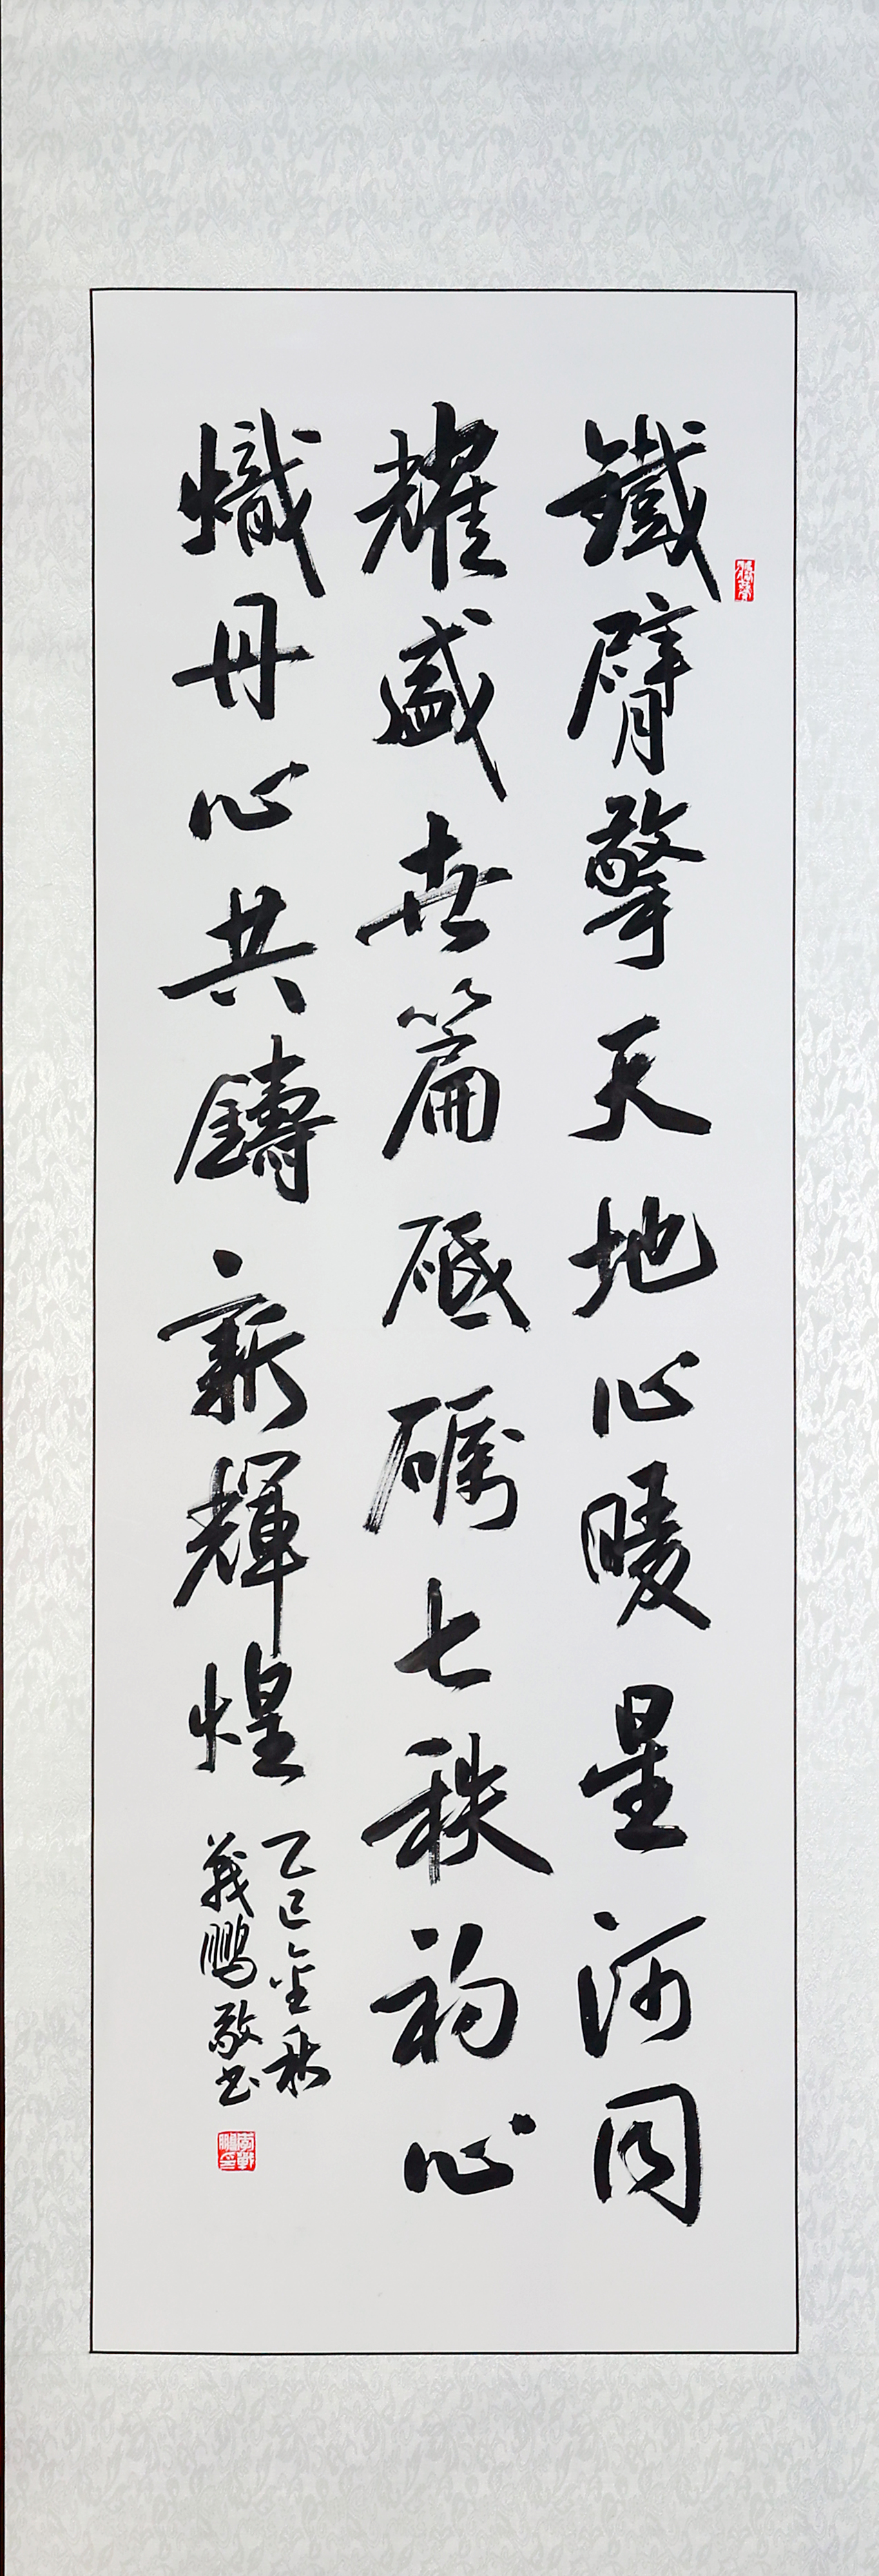 鐵臂擎天地心暖星河同
耀盛世篇砥礪七秩初心
熾丹心共鑄新輝煌
乙巳金秋
義鵬敬书